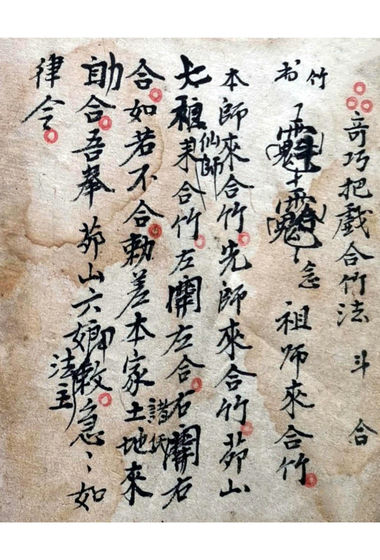 奇巧把戲合竹法 斗 合
竹 书 念 祖師來合竹
本師來合竹先師來合竹茆山
七 仙師來合竹左關左合右關右
合如若不合勅差本家土地來
助合吾奉茆山六 法主敕急〻如
律令